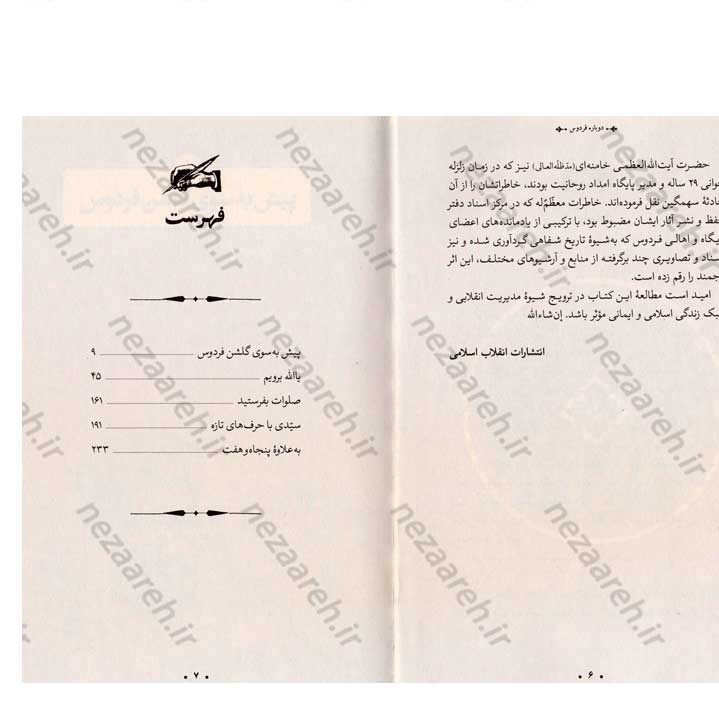 دوباره فردوس
حضرت آیت‌الله‌العظمی خامنه‌ای(مدّظلّه‌العالی) نیز که در زمان زلزله
۲۹ ساله و مدیر پایگاه امداد روحانیت بودند، خاطراتشان را از آن
سهمگین نقل فرموده‌اند. خاطرات معظّم‌له که در مرکز اسناد دفتر
و نشر آثار ایشان مضبوط بود، با ترکیبی از یادمانده‌های اعضای
و اهالی فردوس که به‌شیوهٔ تاریخ شفاهی گردآوری شده و نیز
و تصاویری چند برگرفته از منابع و آرشیوهای مختلف، این اثر
را رقم زده است.
امید است مطالعهٔ این کتاب در ترویج شیوهٔ مدیریت انقلابی و
زندگی اسلامی و ایمانی مؤثر باشد. إن‌شاءالله
انتشارات انقلاب اسلامی
۶
فهرست
پیش به‌سوی گلشن فردوس ۹
یاالله برویم ۴۵
صلوات بفرستید ۱۶۱
سیّدی با حرف‌های تازه ۱۹۱
به‌علاوهٔ پنجاه‌و‌هفت ۲۳۳
۷
nezaareh.ir
nezaareh.ir
nezaareh.ir
nezaareh.ir
nezaareh.ir
nezaareh.ir
nezaareh.ir
nezaareh.ir
nezaareh.ir
nezaareh.ir
nezaareh.ir
nezaareh.ir